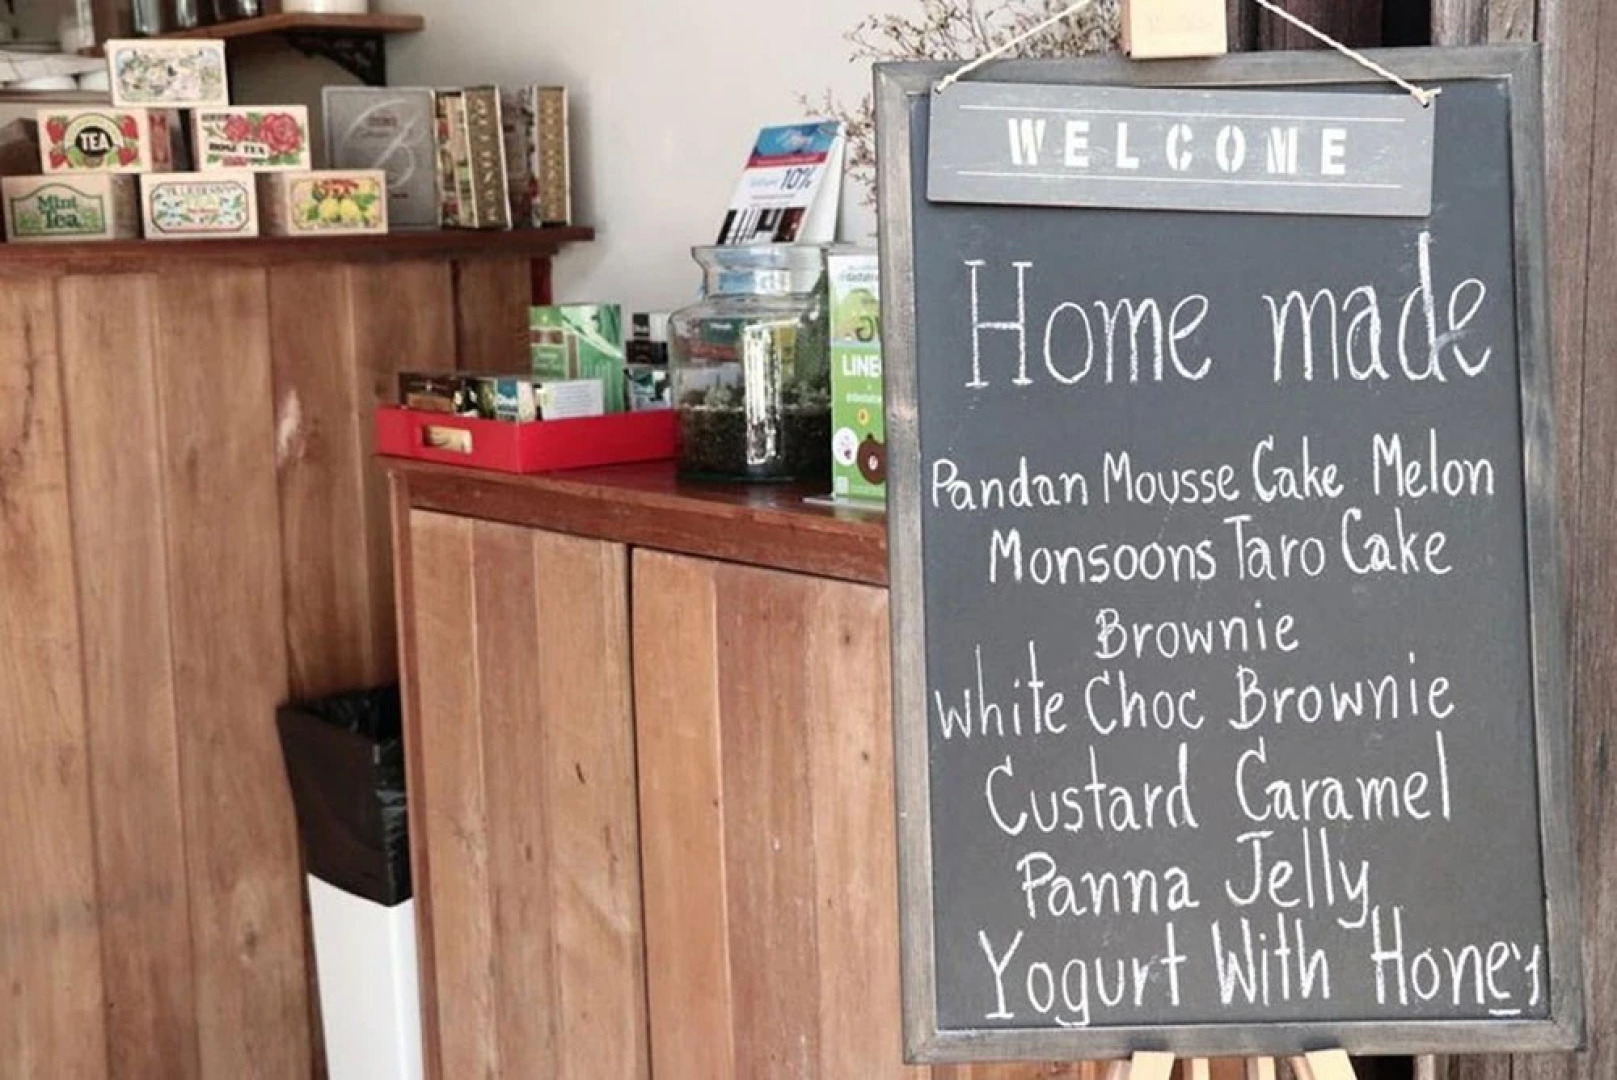 WELCOME
Home made
Pandan Mousse Cake Melon
Monsoons Taro Cake
Brownie
White Choc Brownie
Custard Caramel
Panna Jelly
Yogurt With Honey
TEA
ROSE TEA
Mint
Tea
TEA
TEA
B
10%
LINE